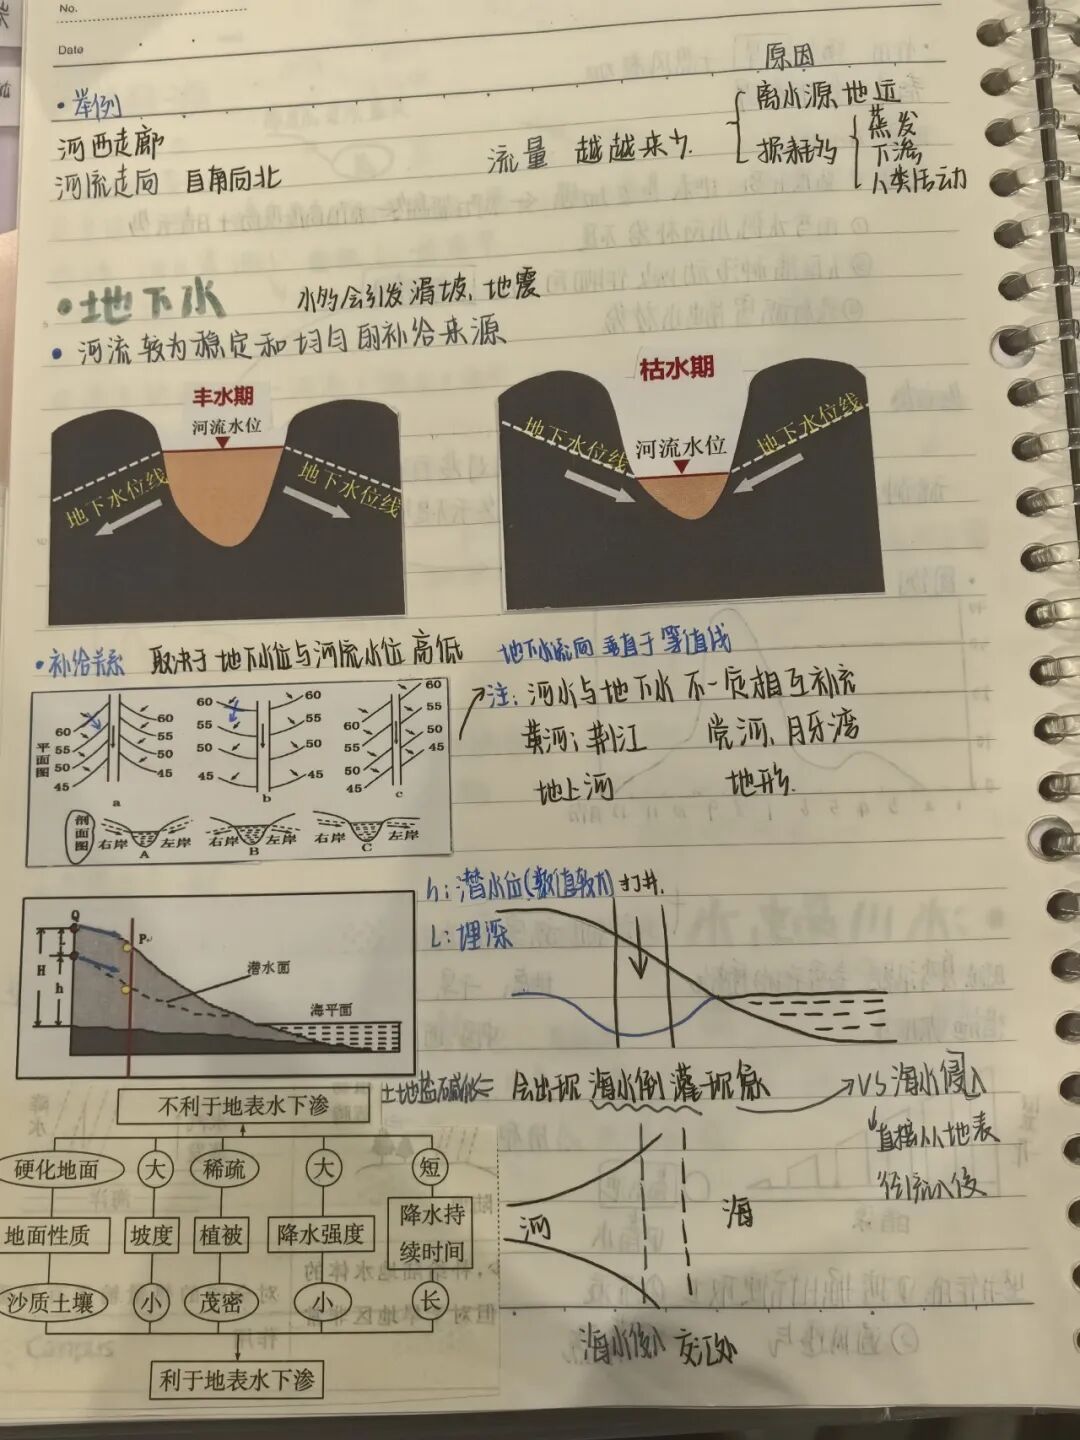 No.
Date
原因
•举例
离水源地远
河西走廊
流量 越越来少.
损耗多
蒸发
下渗
人类活动
河流走向 自南向北
•地下水
水多会引发滑坡、地震
•河流较为稳定和均匀的补给来源
丰水期
河流水位
地下水位线
地下水位线
枯水期
河流水位
地下水位线
地下水位线
•补给关系 取决于地下水位与河流水位高低
地下水流向垂直于等值线
注:河水与地下水不一定相互补充
黄河;荆江
党河、月牙湾
地上河
地形.
平面图
60 55 50 45
60 55 50 45
a
60 55 50 45
60 55 50 45
b
60 55 50 45
60 55 50 45
c
剖面图
右岸 A 左岸
右岸 B 左岸
右岸 C 左岸
h:潜水位(数值较大)
打井.
L:埋深
Q
P
H
L
h
潜水面
海平面
土地盐碱化
会出现海水倒灌现象
VS海水侵入
直接从地表
径流入侵
河
海
海水倒入交汇处
不利于地表水下渗
硬化地面 大 稀疏 大 短
地面性质 坡度 植被 降水强度 降水持续时间
沙质土壤 小 茂密 小 长
利于地表水下渗